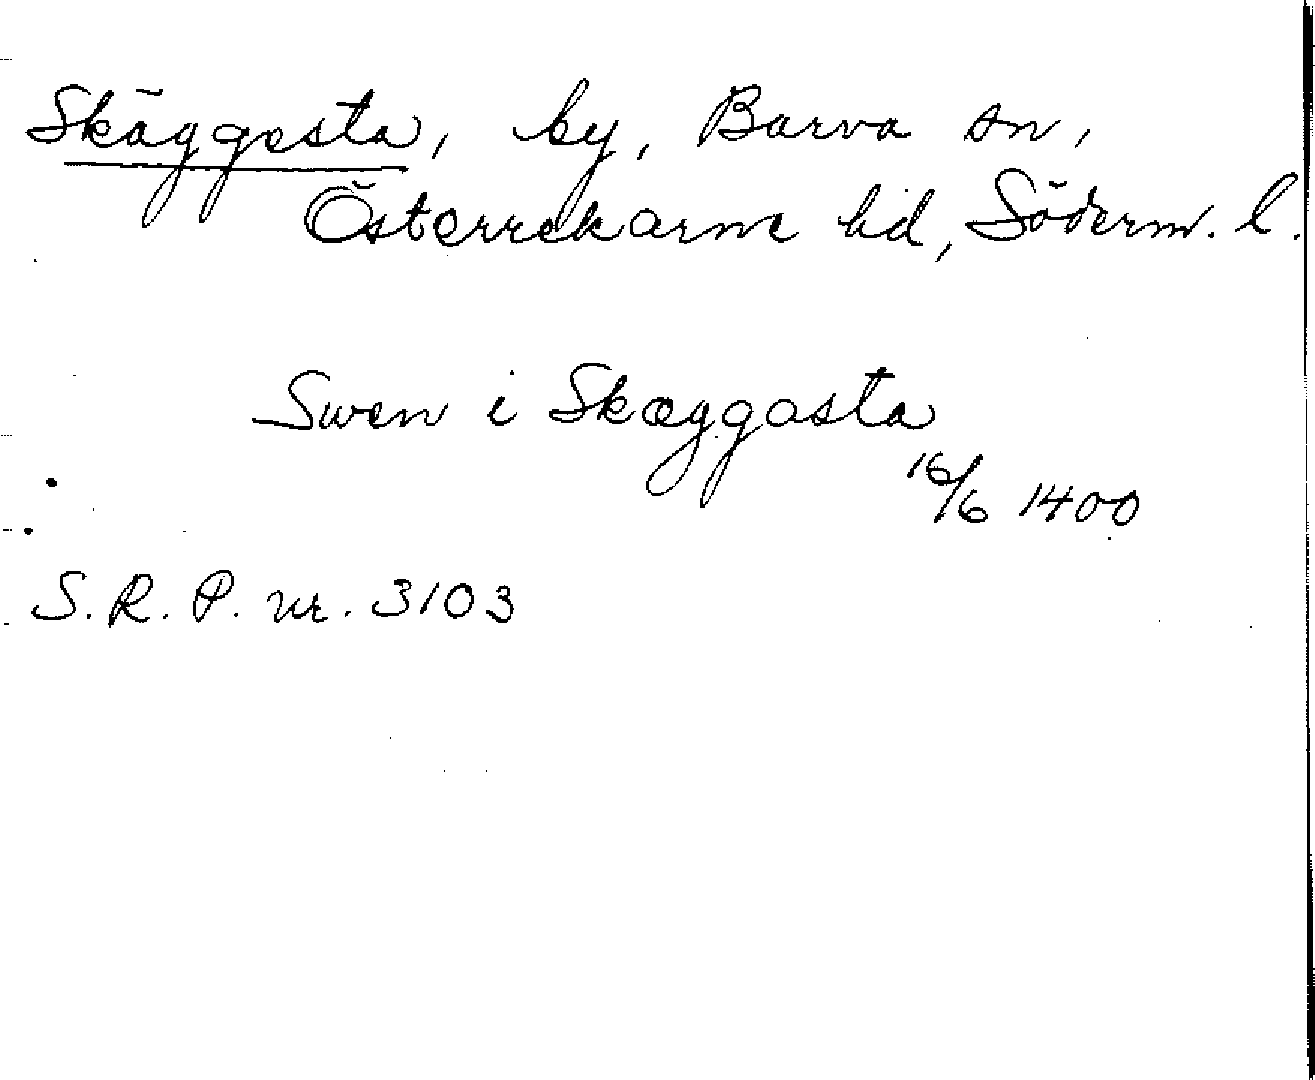 Skäggesta, by, Barva sn,
Österrekarne hd, Söderm. l.
Swen i Skæggasta
16/6 1400
S. R. P. nr. 3103